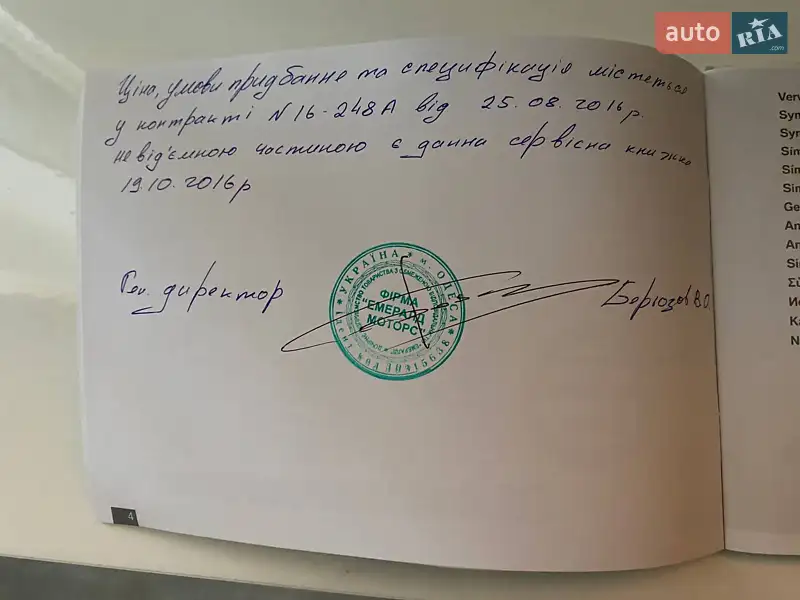 auto RIA .com
Ціна, умови придбанне та специфікація містеться
у контракті N 16-248А від 25.08.2016р.
невід'ємною частиною є данна сервісна книжка
19.10.2016р
Ген. директор
УКРАЇНА * м. ОДЕСА
ФІРМА
"ЕМЕРАЛД
МОТОРС"
Берюзов В.О.
4
Ver
Syn
Syn
Sim
Sim
Sim
Ge
An
An
Sin
Σύ
Ис
Ка
N